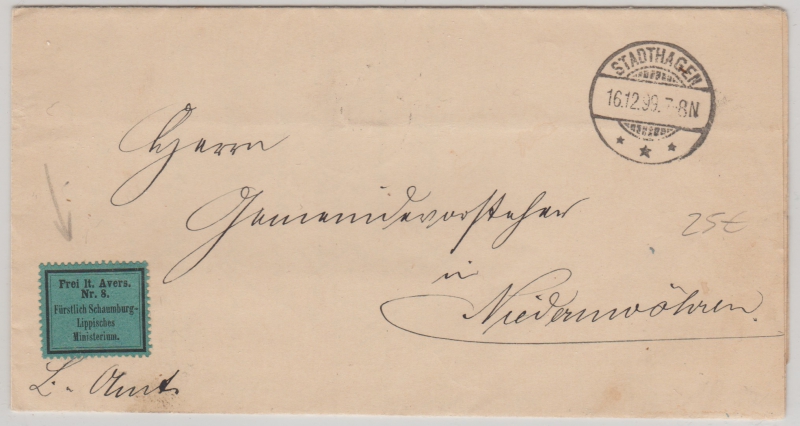 STADTHAGEN
16.12.99. 7-8N
Herrn
Gemeindevorsteher
in
Niedernwöhren.
25€
Frei lt. Avers.
Nr. 8.
Fürstlich Schaumburg-
Lippisches
Ministerium.
L. Amt.